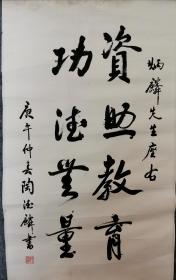 炳麟先生座右
資助教育
功德無量
庚午仲春陶德麟書